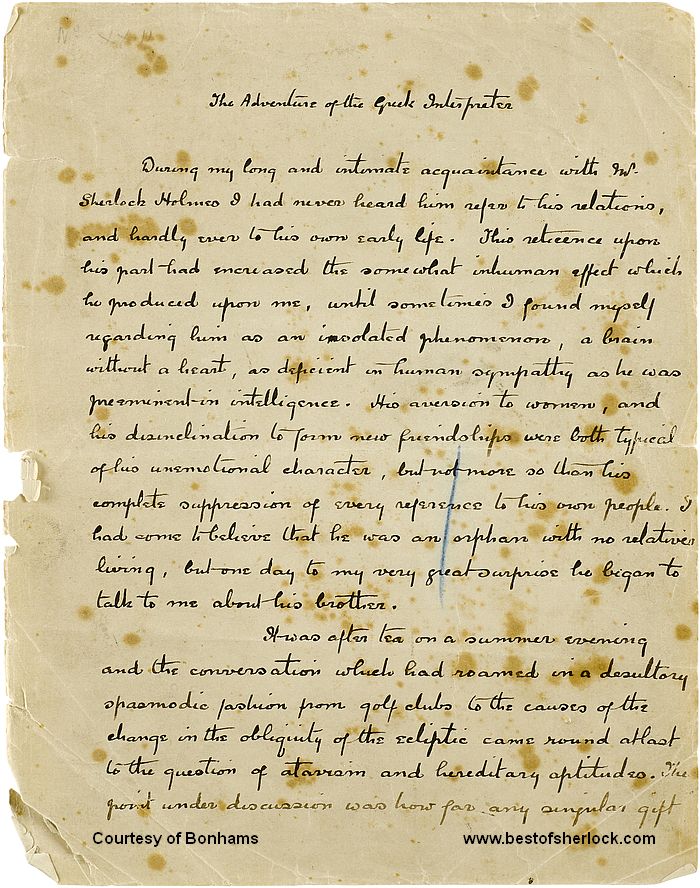 The Adventure of the Greek Interpreter
During my long and intimate acquaintance with Mr.
Sherlock Holmes I had never heard him refer to his relations,
and hardly ever to his own early life. This reticence upon
his part had encreased the somewhat inhuman effect which
he produced upon me, until sometimes I found myself
regarding him as an isolated phenomenon, a brain
without a heart, as deficient in human sympathy as he was
preeminent in intelligence. His aversion to women, and
his disinclination to form new friendships were both typical
of his unemotional character, but not more so than his
complete suppression of every reference to his own people. I
had come to believe that he was an orphan with no relatives
living, but one day to my very great surprise he began to
talk to me about his brother.
It was after tea on a summer evening
and the conversation which had roamed in a desultory
spasmodic fashion from golf clubs to the causes of the
change in the obliquity of the ecliptic came round at last
to the question of atavism and hereditary aptitudes. The
point under discussion was how far any singular gift
Courtesy of Bonhams
www.bestofsherlock.com